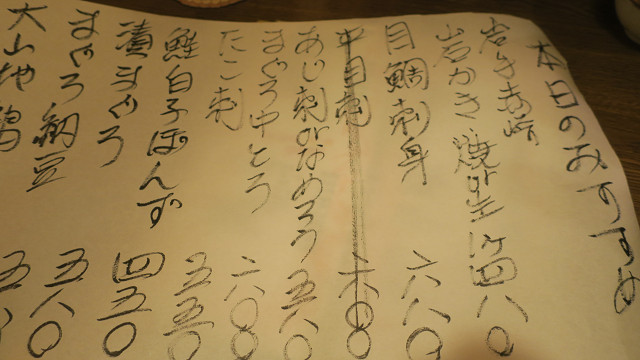 本日のおすすめ
岩手赤崎
岩かき 焼or生 1ケ四八〇
目鯛刺身 六八〇
あじ刺orなめろう 五八〇
まぐろ中とろ 六〇〇
たこ刺
鮭白子ぽんず 五五〇
漬まぐろ 四五〇
まぐろ納豆 五八〇
大山地鶏